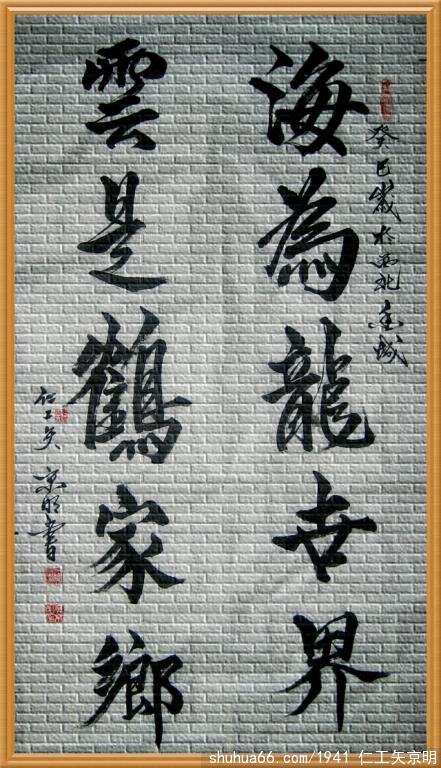 癸巳歲於西北金城
海為龍世界
雲是鶴家鄉
仁工矢京明書
shuhua66.com/1941 仁工矢京明